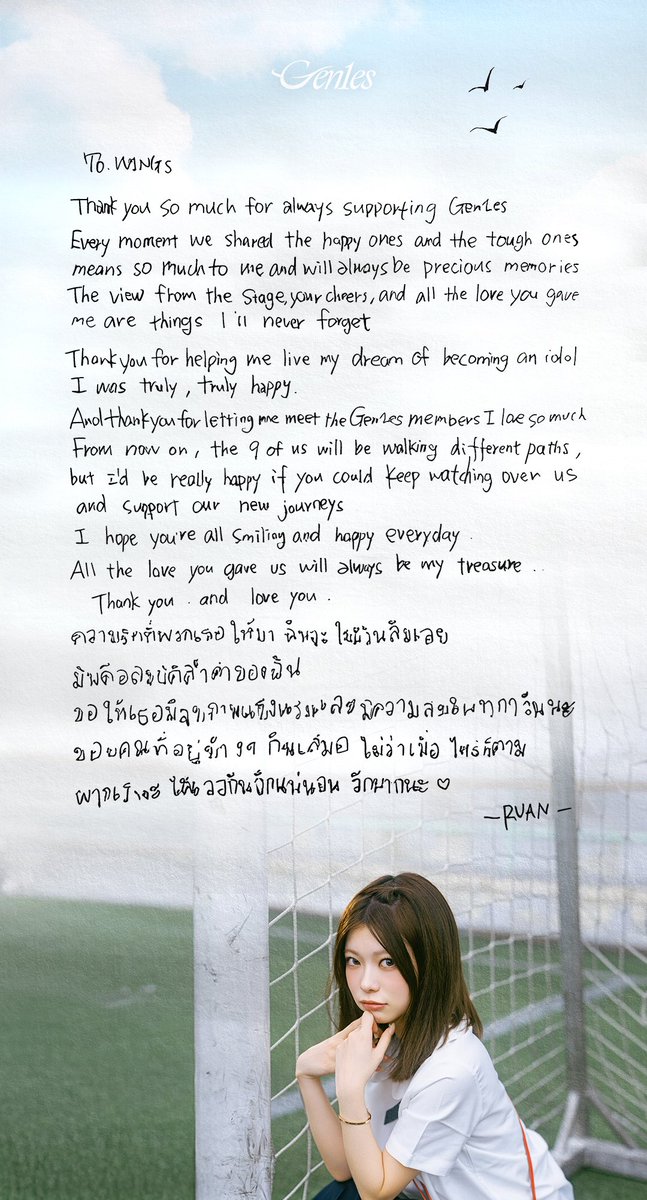 Gen1es
TO. WINGS
Thank you so much for always supporting Gen1es
Every moment we shared the happy ones and the tough ones
means so much to me and will always be precious memories
The view from the stage, your cheers, and all the love you gave
me are things I'll never forget
Thank you for helping me live my dream of becoming an idol
I was truly, truly happy.
And thank you for letting me meet the Gen1es members I love so much
From now on, the 9 of us will be walking different paths,
but I'd be really happy if you could keep watching over us
and support our new journeys
I hope you're all smiling and happy everyday.
All the love you gave us will always be my treasure..
Thank you. and love you.
ความรักที่พวกเธอให้มา ฉันจะไม่มีวันลืมเลย
ของฉัน
ขอให้เธอมีสุขภาพแข็งแรงและมีความสุขในทุกๆวันนะ
ขอบคุณที่อยู่ข้างๆกันเสมอ ไม่ว่าเมื่อไหร่ก็ตาม
กันอีกแน่นอน รักมากนะ ♡
— RUAN —